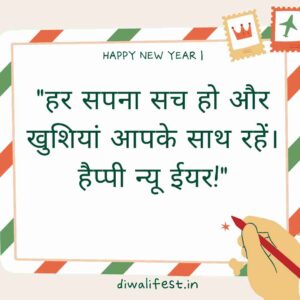 HAPPY NEW YEAR |
"हर सपना सच हो और
खुशियां आपके साथ रहें।
हैप्पी न्यू ईयर!"
diwalifest.in